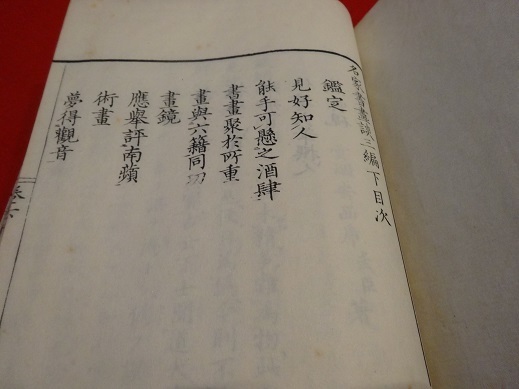 名家書畫談三編下目次
鑑定
見好知人
能手可懸之酒肆
書畫聚於所重
畫與六籍同功
畫鏡
應舉評南蘋
術畫
夢得觀音